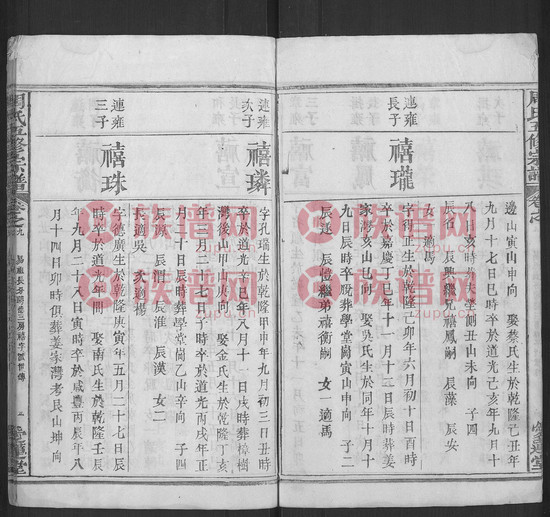 周氏五修宗譜
邊山寅山申向
娶蔡氏生於乾隆己丑年
九月十七日巳時卒於道光己亥年九月十
八日亥時
側丑山未向
子四
辰石
辰興繼兄禧鳳嗣
辰藻
辰安
女
適馬
連雍長子
禧瓏
字得正生於乾隆己卯年六月初十日酉時
卒於嘉慶丁巳年十一月十二日辰時葬姜
家灣亥山巳向
娶吳氏生於同年十月十
九日辰時卒歿葬學堂崗寅山申向
子二
辰逵
辰憕繼弟禧衡嗣
女一適馬
連雍次子
禧璘
字孔瑞生於乾隆甲申年九月初三日丑時
卒於道光辛巳年八月十一日戌時葬樟樹
灣後山甲山庚向
娶金氏生於乾隆丁亥
年三月二十七日子時卒於道光丙戌年正
月二十日辰時葬學堂崗乙山辛向
子四
辰淮
辰漢
女二
長適吳
次適楊
連雍三子
禧珠
字德廣生於乾隆庚寅年五月二十七日辰
時卒於道光年間
娶南氏生於乾隆壬辰
年九月二十八日寅時卒於咸豐丙辰年八
月十四日卯時俱葬姜家灣考艮山坤向
周氏五修宗譜
族谱网
族谱网